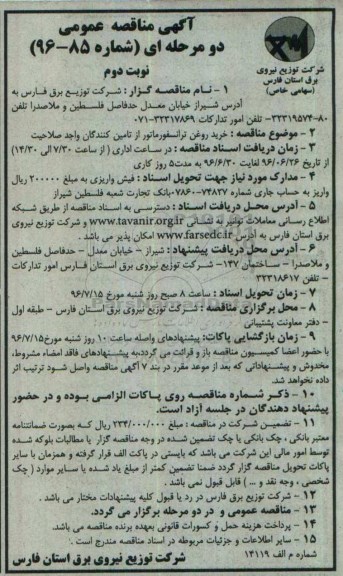 آگهی مناقصه عمومی
دو مرحله ای (شماره ۸۵-۹۶)
نوبت دوم
شرکت توزیع نیروی
برق استان فارس
(سهامی خاص)
۱ - نام مناقصه گزار : شرکت توزیع برق فارس به
آدرس شیراز خیابان معدل حدفاصل فلسطین و ملاصدرا تلفن
۸۰-۳۲۳۱۹۵۷۴ تلفن امور تدارکات ۳۲۳۱۷۸۶۹-۰۷۱
۲ - موضوع مناقصه : خرید روغن ترانسفورماتور از تامین کنندگان واجد صلاحیت
۳ - زمان دریافت اسناد مناقصه : در ساعت اداری ( از ساعت ۷/۳۰ الی ۱۴/۳۰)
از تاریخ ۹۶/۰۶/۲۶ لغایت ۹۶/۶/۳۰ به مدت ۵ روز کاری
۴ - مدارک مورد نیاز جهت تحویل اسناد : فیش واریزی به مبلغ ۲۰۰۰۰۰ ریال
واریز به حساب جاری شماره ۷۴۸۲۷-۰۷۸۶۰ بانک تجارت شعبه فلسطین شیراز
۵ - آدرس محل دریافت اسناد : دسترسی به اسناد مناقصه از طریق شبکه
اطلاع رسانی معاملات توانیر به نشانی www.tavanir.org.ir و شرکت توزیع نیروی
برق استان فارس به آدرس www.farsedc.ir امکان پذیر می باشد .
۶ - آدرس محل دریافت پیشنهاد : شیراز – خیابان معدل – حدفاصل فلسطین
و ملاصدرا – ساختمان ۱۴۷- شرکت توزیع نیروی برق استان فارس امور تدارکات
– تلفن ۳۲۳۱۸۶۱۷
۷ - زمان تحویل اسناد : ساعت ۸ صبح روز شنبه مورخ ۹۶/۷/۱۵
۸ - محل برگزاری مناقصه : شرکت توزیع نیروی برق استان فارس – طبقه اول
– دفتر معاونت پشتیبانی
۹ - زمان بازگشایی پاکات: پیشنهادهای واصله ساعت ۱۰ روز شنبه مورخ ۹۶/۷/۱۵
با حضور اعضا کمیسیون مناقصه باز و قرائت می گردد.به پیشنهادهای فاقد امضاء مشروط،
مخدوش و پیشنهاداتی که بعد از موعد مقرر در بند ۷ آگهی مناقصه واصل شود ترتیب اثر
داده نخواهد شد.
۱۰ - ذکر شماره مناقصه روی پاکات الزامی بوده و در حضور
پیشنهاد دهندگان در جلسه آزاد است.
۱۱ - تضمین شرکت در مناقصه : مبلغ ۲۳۴/۰۰۰/۰۰۰ ریال که بصورت ضمانتنامه
معتبر بانکی ، چک بانکی یا چک تضمین شده در وجه مناقصه گزار یا مطالبات بلوکه شده
توسط امور مالی این شرکت می باشد که بایستی در پاکت الف قرار گرفته و همزمان با سایر
پاکات تحویل مناقصه گزار گردد ضمنا تضمین کمتر از مبلغ یاد شده یا سایر موارد ( چک
شخصی ، وجه نقد و ... ) قابل قبول نمی باشد .
۱۲ - شرکت توزیع برق فارس در رد یا قبول کلیه پیشنهادات مختار می باشد .
۱۳ - مناقصه عمومی و در دو مرحله برگزار می گردد.
۱۴ - پرداخت هزینه حمل و کسورات قانونی بعهده برنده مناقصه می باشد.
۱۵ - سایر اطلاعات و جزئیات مربوطه در اسناد مناقصه مندرج است .
شماره م الف ۱۴۱۱۹
شرکت توزیع نیروی برق استان فارس